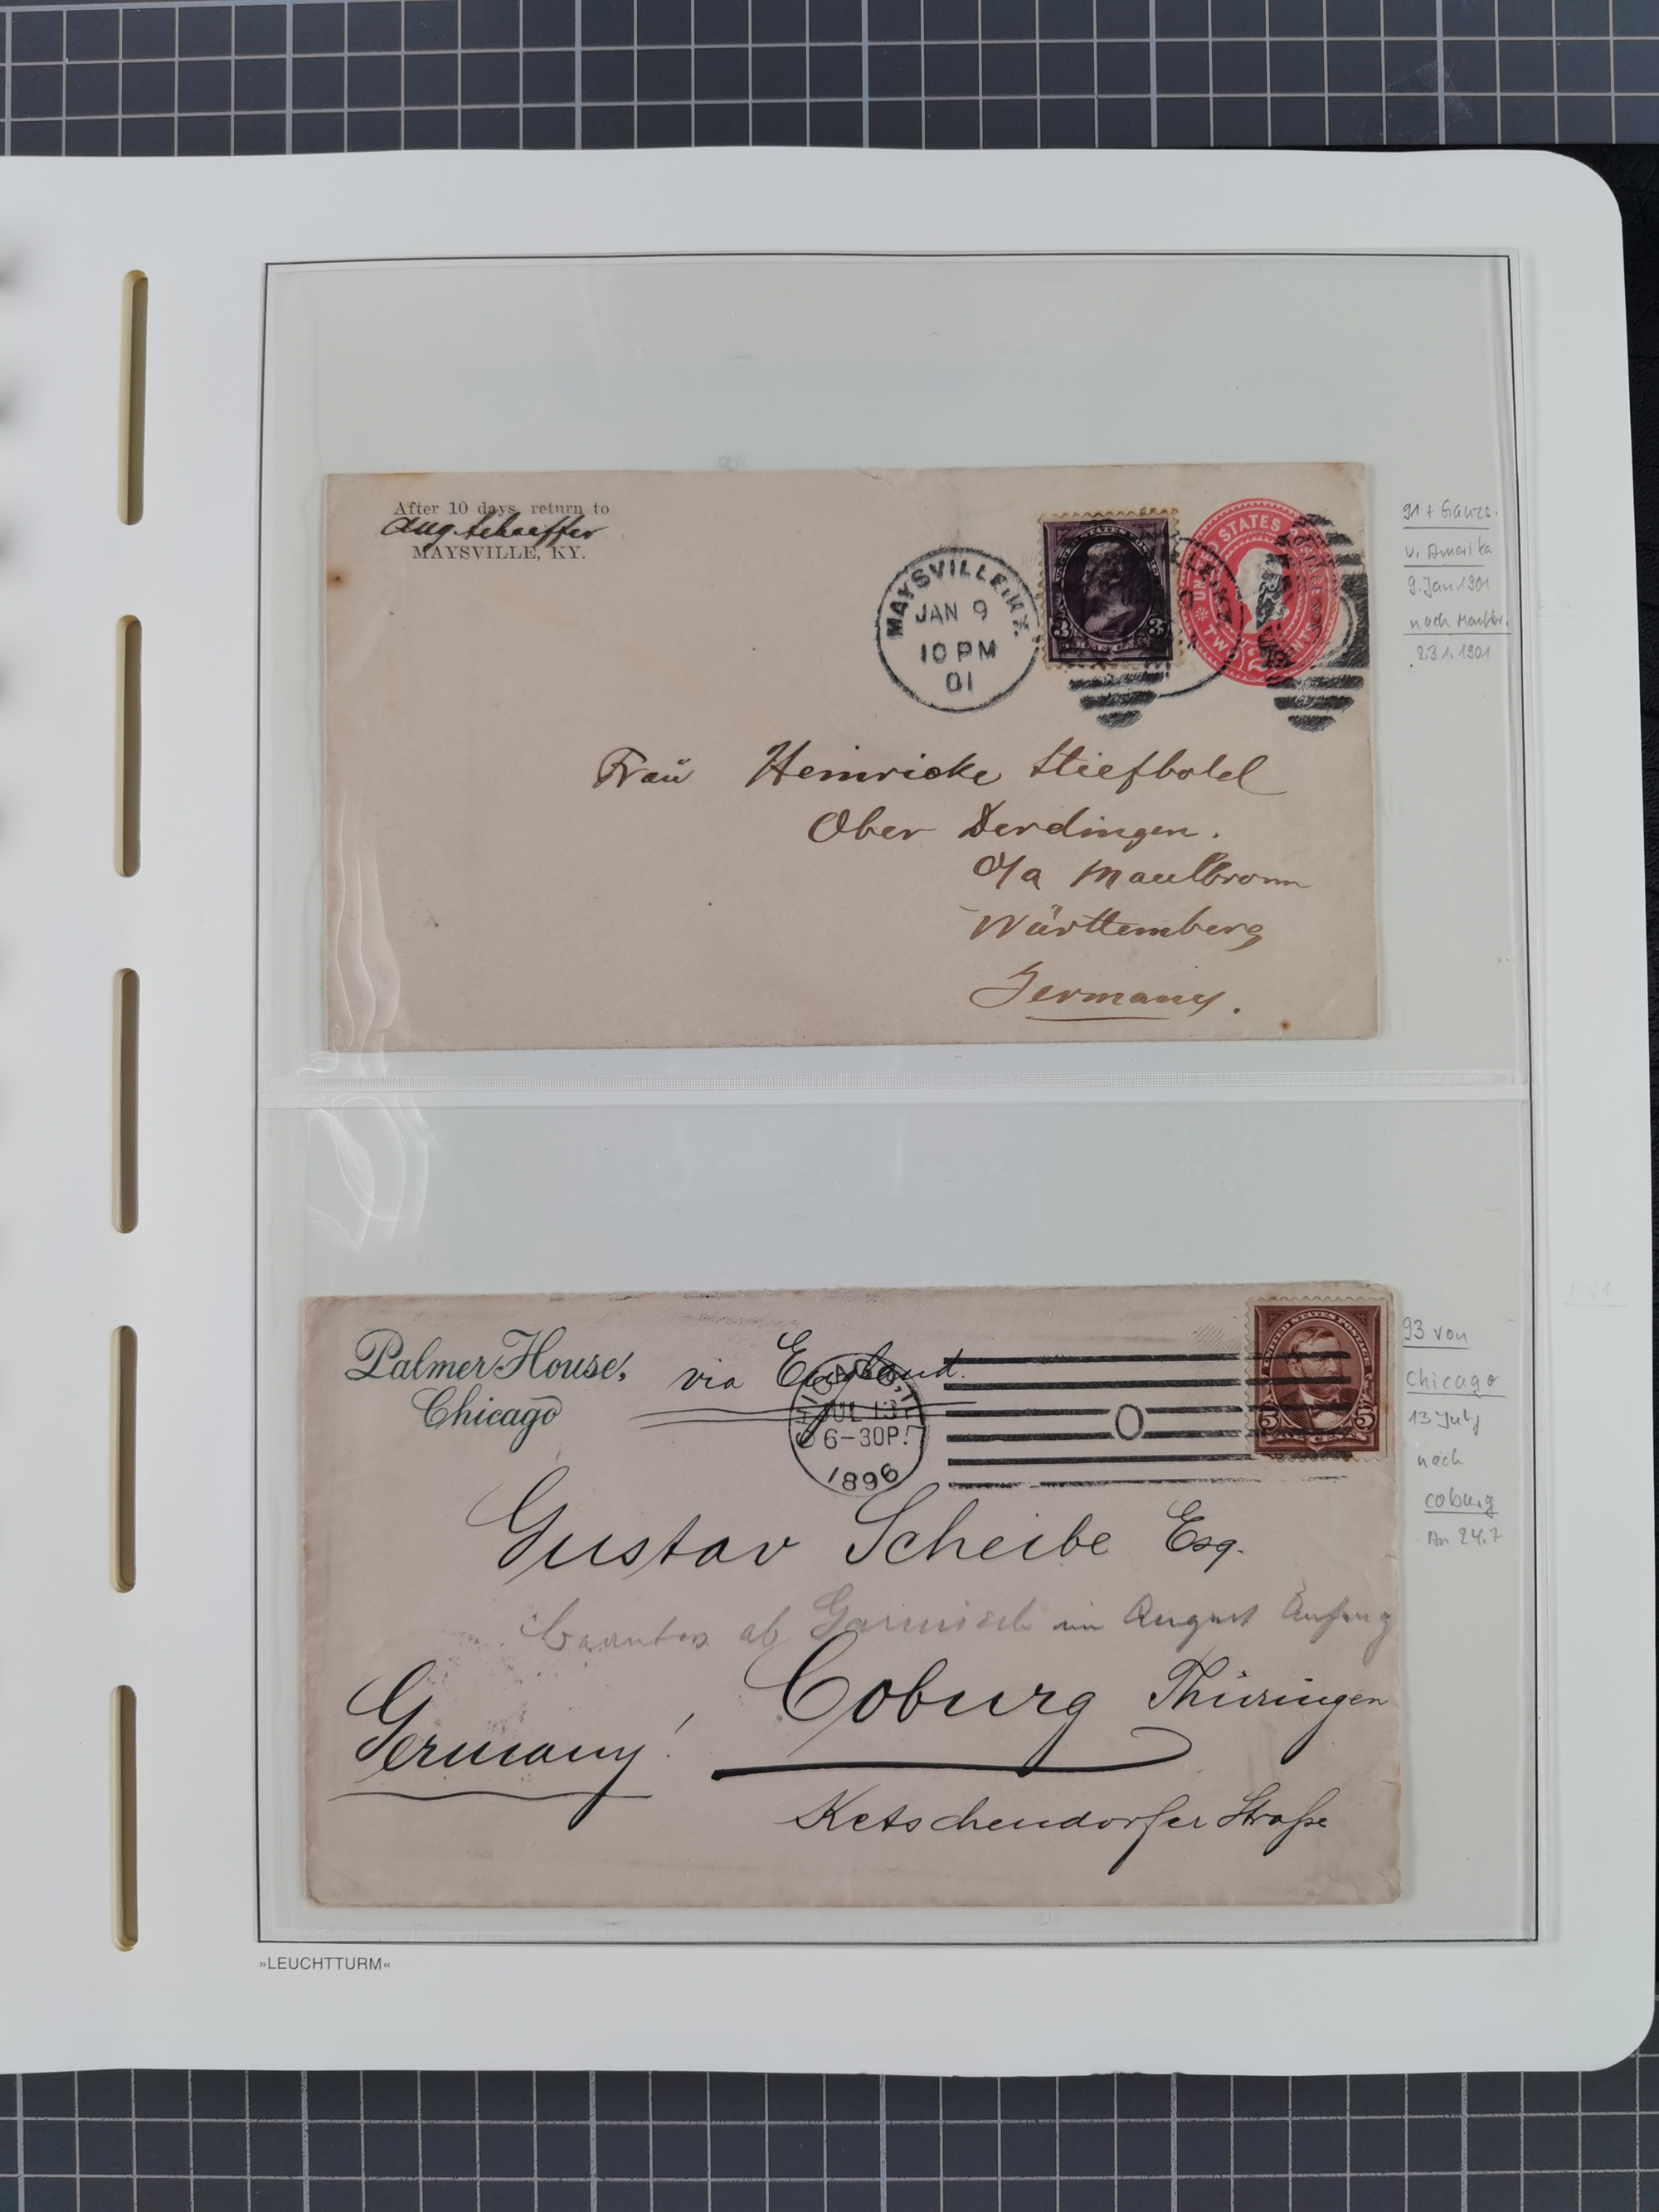 After 10 days, return to
Aug. Schaeffer
MAYSVILLE, KY.
MAYSVILLE, KY.
JAN 9
10 PM
01
3 3
UNITED STATES POSTAGE
TWO 2 CENTS
Frau Heinricke Stiefbold
Ober Derdingen.
O/a Maulbronn
Württemberg
Germany.
91 + Ganzs.
v. Amerika
9. Jan 1901
nach Maulbr.
23.1.1901
Palmer House,
Chicago
via England.
CHICAGO, ILL.
JUL 13
6-30P.
1896
UNITED STATES POSTAGE
5 5
Gustav Scheibe Esq.
ab Garmisch im August Anfang
Coburg Thüringen
Germany!
Ketschendorfer Straße
93 von
Chicago
13 July
nach
Coburg
An 24.7
»LEUCHTTURM«